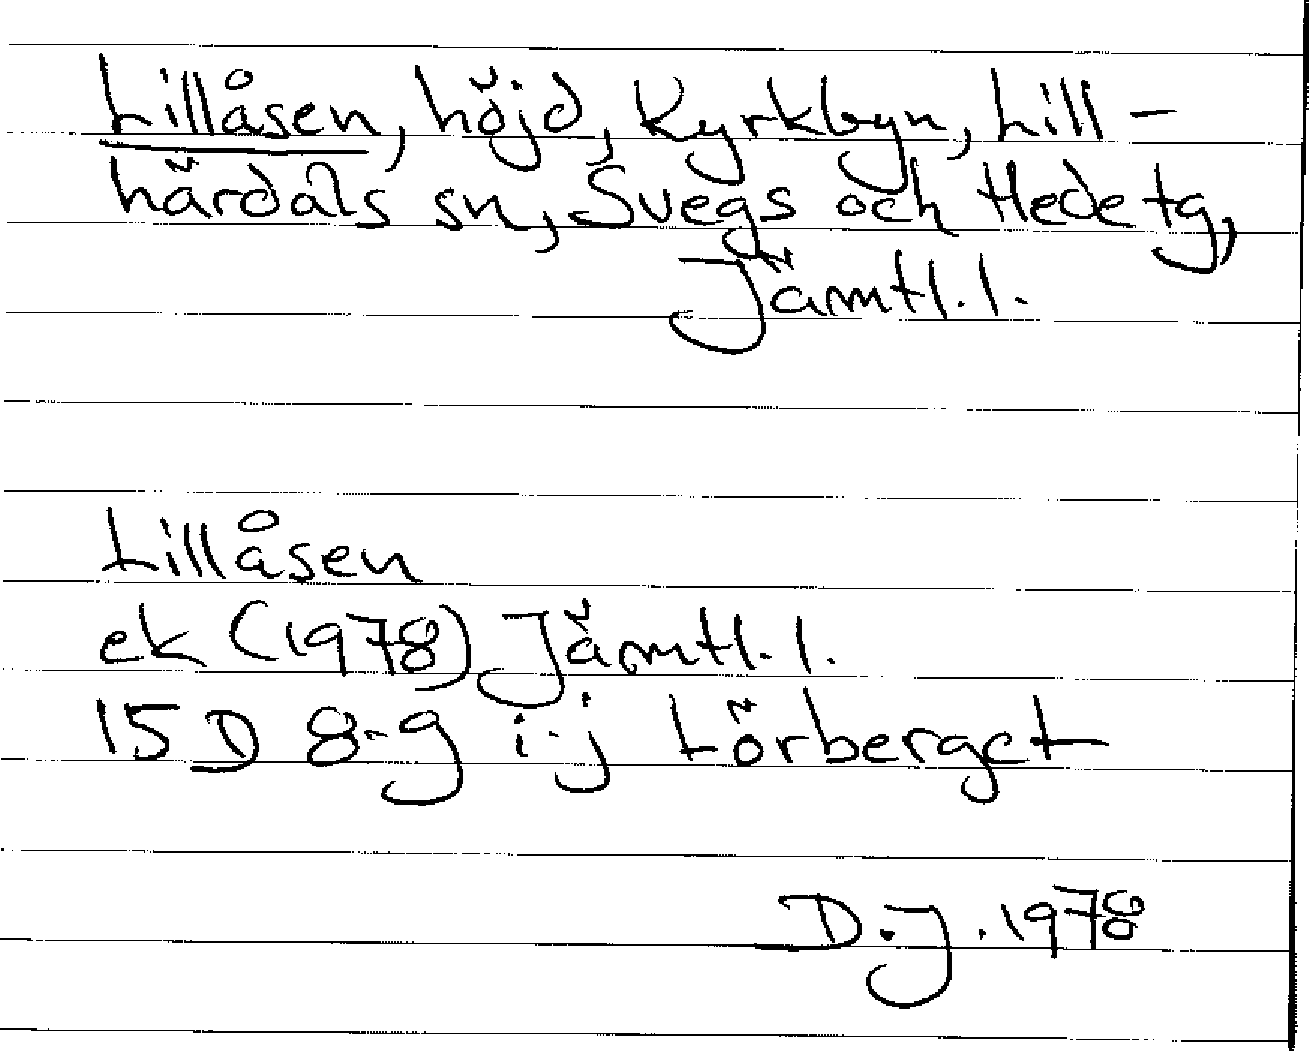 Lillåsen, höjd, Kyrkbyn, Lill-
härdals sn, Svegs och Hede tg,
Jämtl. l.
Lillåsen
ek (1978) Jämtl. l.
15 D 8-9 i-j Lörberget
D.J. 1978